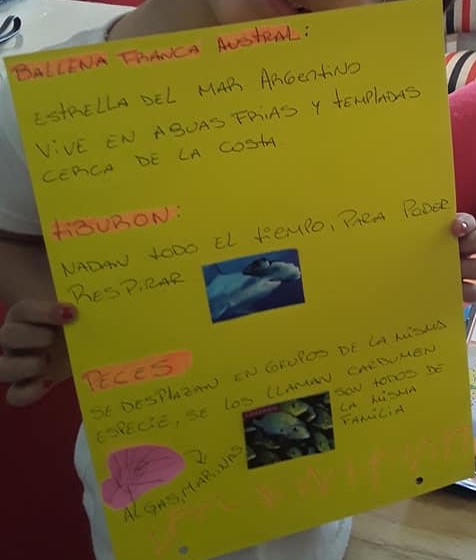 BALLENA FRANCA AUSTRAL:
ESTRELLA DEL MAR ARGENTINO
VIVE EN AGUAS FRIAS Y TEMPLADAS
CERCA DE LA COSTA
TIBURON:
NADAN TODO EL TIEMPO, PARA PODER
RESPIRAR
PECES
SE DESPLAZAN EN GRUPOS DE LA MISMA
ESPECIE, SE LOS LLAMAN CARDUMEN
SON TODOS DE
LA MISMA
FAMILIA
ALGAS MARINAS